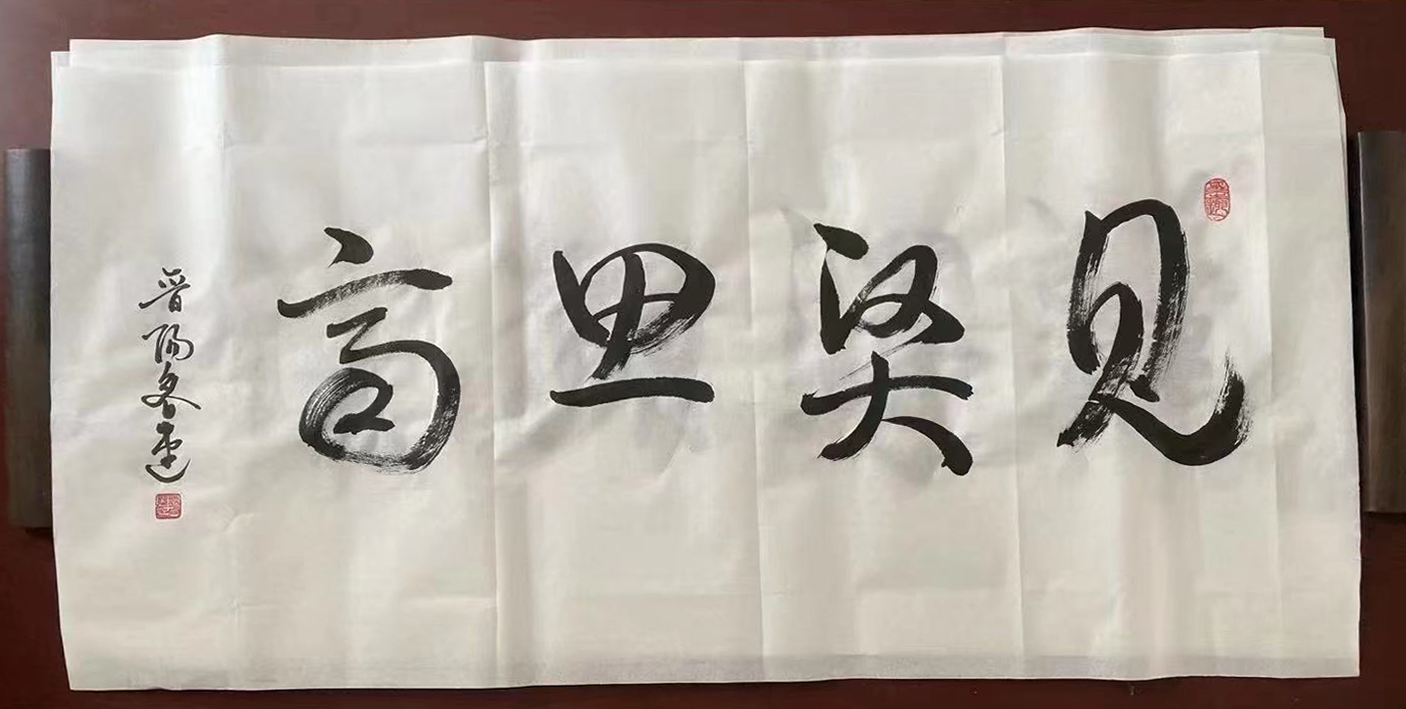 见贤思齐
晋阳冬